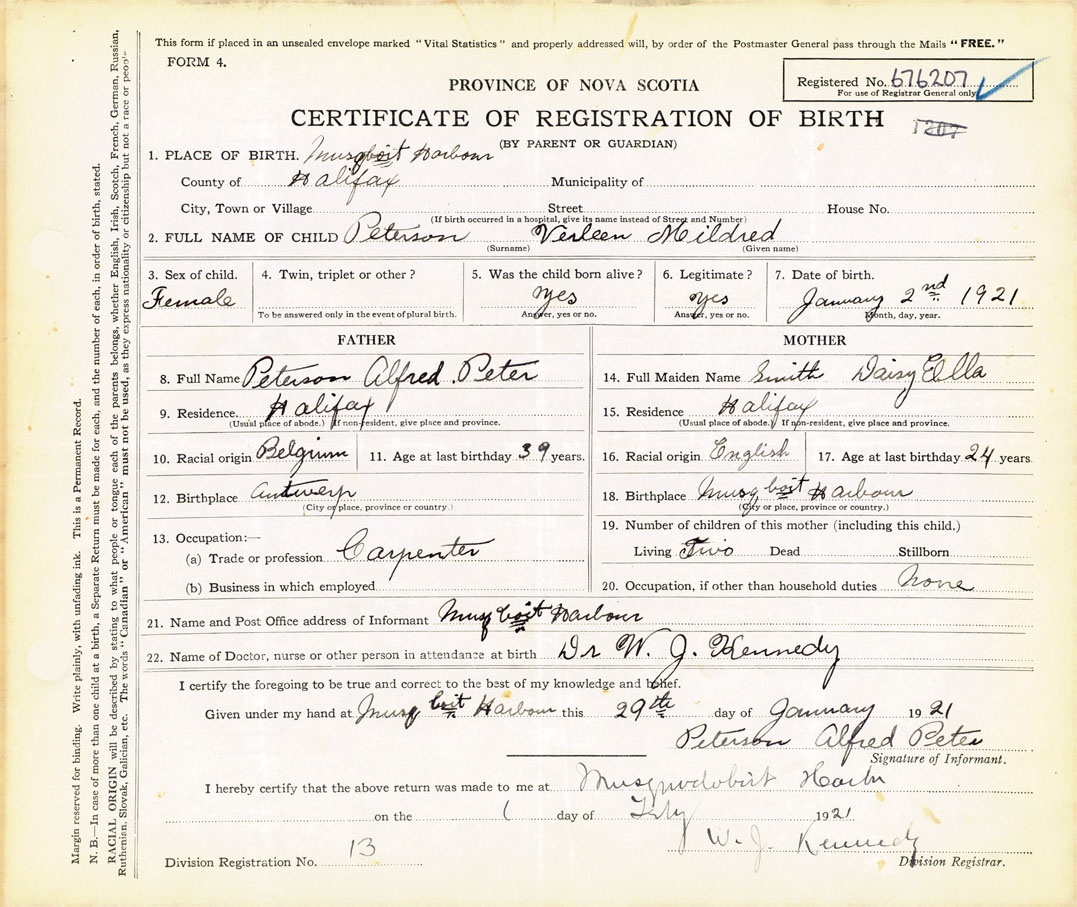 This form if placed in an unsealed envelope marked "Vital Statistics" and properly addressed will, by order of the Postmaster General pass through the Mails "FREE."
FORM 4.
Registered No. 676207
For use of Registrar General only
PROVINCE OF NOVA SCOTIA
CERTIFICATE OF REGISTRATION OF BIRTH
1207
(BY PARENT OR GUARDIAN)
1. PLACE OF BIRTH. Musqboit Harbour
County of Halifax Municipality of
City, Town or Village Street House No.
(If birth occurred in a hospital, give its name instead of Street and Number)
2. FULL NAME OF CHILD Peterson Verleen Mildred
(Surname) (Given name)
3. Sex of child. 4. Twin, triplet or other? 5. Was the child born alive? 6. Legitimate? 7. Date of birth.
Female yes yes January 2nd 1921
To be answered only in the event of plural birth. Answer, yes or no. Answer, yes or no. Month, day, year.
FATHER
8. Full Name Peterson Alfred. Peter
9. Residence. Halifax
(Usual place of abode.) If non-resident, give place and province.
10. Racial origin Belgium 11. Age at last birthday 39 years.
12. Birthplace Antwerp
(City or place, province or country.)
13. Occupation:—
(a) Trade or profession Carpenter
(b) Business in which employed
MOTHER
14. Full Maiden Name Smith Daisy Ella
15. Residence Halifax
(Usual place of abode.) If non-resident, give place and province.
16. Racial origin English 17. Age at last birthday 24 years.
18. Birthplace Musqboit Harbour
(City or place, province or country.)
19. Number of children of this mother (including this child.)
Living Two Dead Stillborn
20. Occupation, if other than household duties None
21. Name and Post Office address of Informant Musqboit Harbour
22. Name of Doctor, nurse or other person in attendance at birth Dr W. J. Kennedy
I certify the foregoing to be true and correct to the best of my knowledge and belief.
Given under my hand at Musqboit Harbour this 29th day of January 1921
Peterson Alfred Peter
Signature of Informant.
I hereby certify that the above return was made to me at Musquodobirt Harbr
on the 1 day of 1921
W. J. Kennedy
Division Registration No. 13 Division Registrar.
Margin reserved for binding. Write plainly, with unfading ink. This is a Permanent Record.
N. B.—In case of more than one child at a birth, a Separate Return must be made for each, and the number of each, in order of birth, stated.
RACIAL ORIGIN will be described by stating to what people or tongue each of the parents belongs, whether English, Irish, Scotch, French, German, Russian,
Ruthenian, Slovak, Galician, etc. The words "Canadian" or "American" must not be used, as they express nationality or citizenship but not a race or people